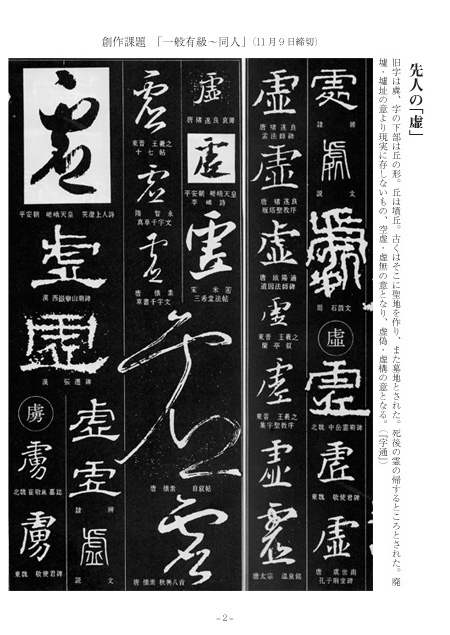 創作課題　「一般有級～同人」（11月9日締切）
先人の「虚」
旧字は虛、字の下部は丘の形。丘は墳丘。古くはそこに聖地を作り、また墓地とされた。死後の霊の帰するところとされた。廃
墟・墟址の意より現実に存しないもの、空虚・虚無の意となり、虚偽・虚構の意となる。（『字通』）
隷辨
説文
周　石鼓文
虛
北魏　中岳霊廟碑
東魏　敬使君碑
唐　虞世南
孔子廟堂碑
唐　褚遂良
孟法師碑
唐　褚遂良
雁塔聖教序
唐　欧陽通
道因法師碑
東晋　王羲之
蘭亭叙
東晋　王羲之
集字聖教序
唐太宗　温泉銘
唐　褚遂良
平安朝　嵯峨天皇
李嶠詩
宋　米芾
三希堂法帖
東晋　王羲之
十七帖
隋　智永
真草千字文
唐　懐素
草書千字文
唐　懐素　自叙帖
唐　懐素　秋興八首
平安朝　嵯峨天皇　哭澄上人詩
漢　西嶽華山廟碑
漢　張遷碑
虜
北魏　崔敬邕墓誌
東魏　敬使君碑
隷辨
説文
－2－